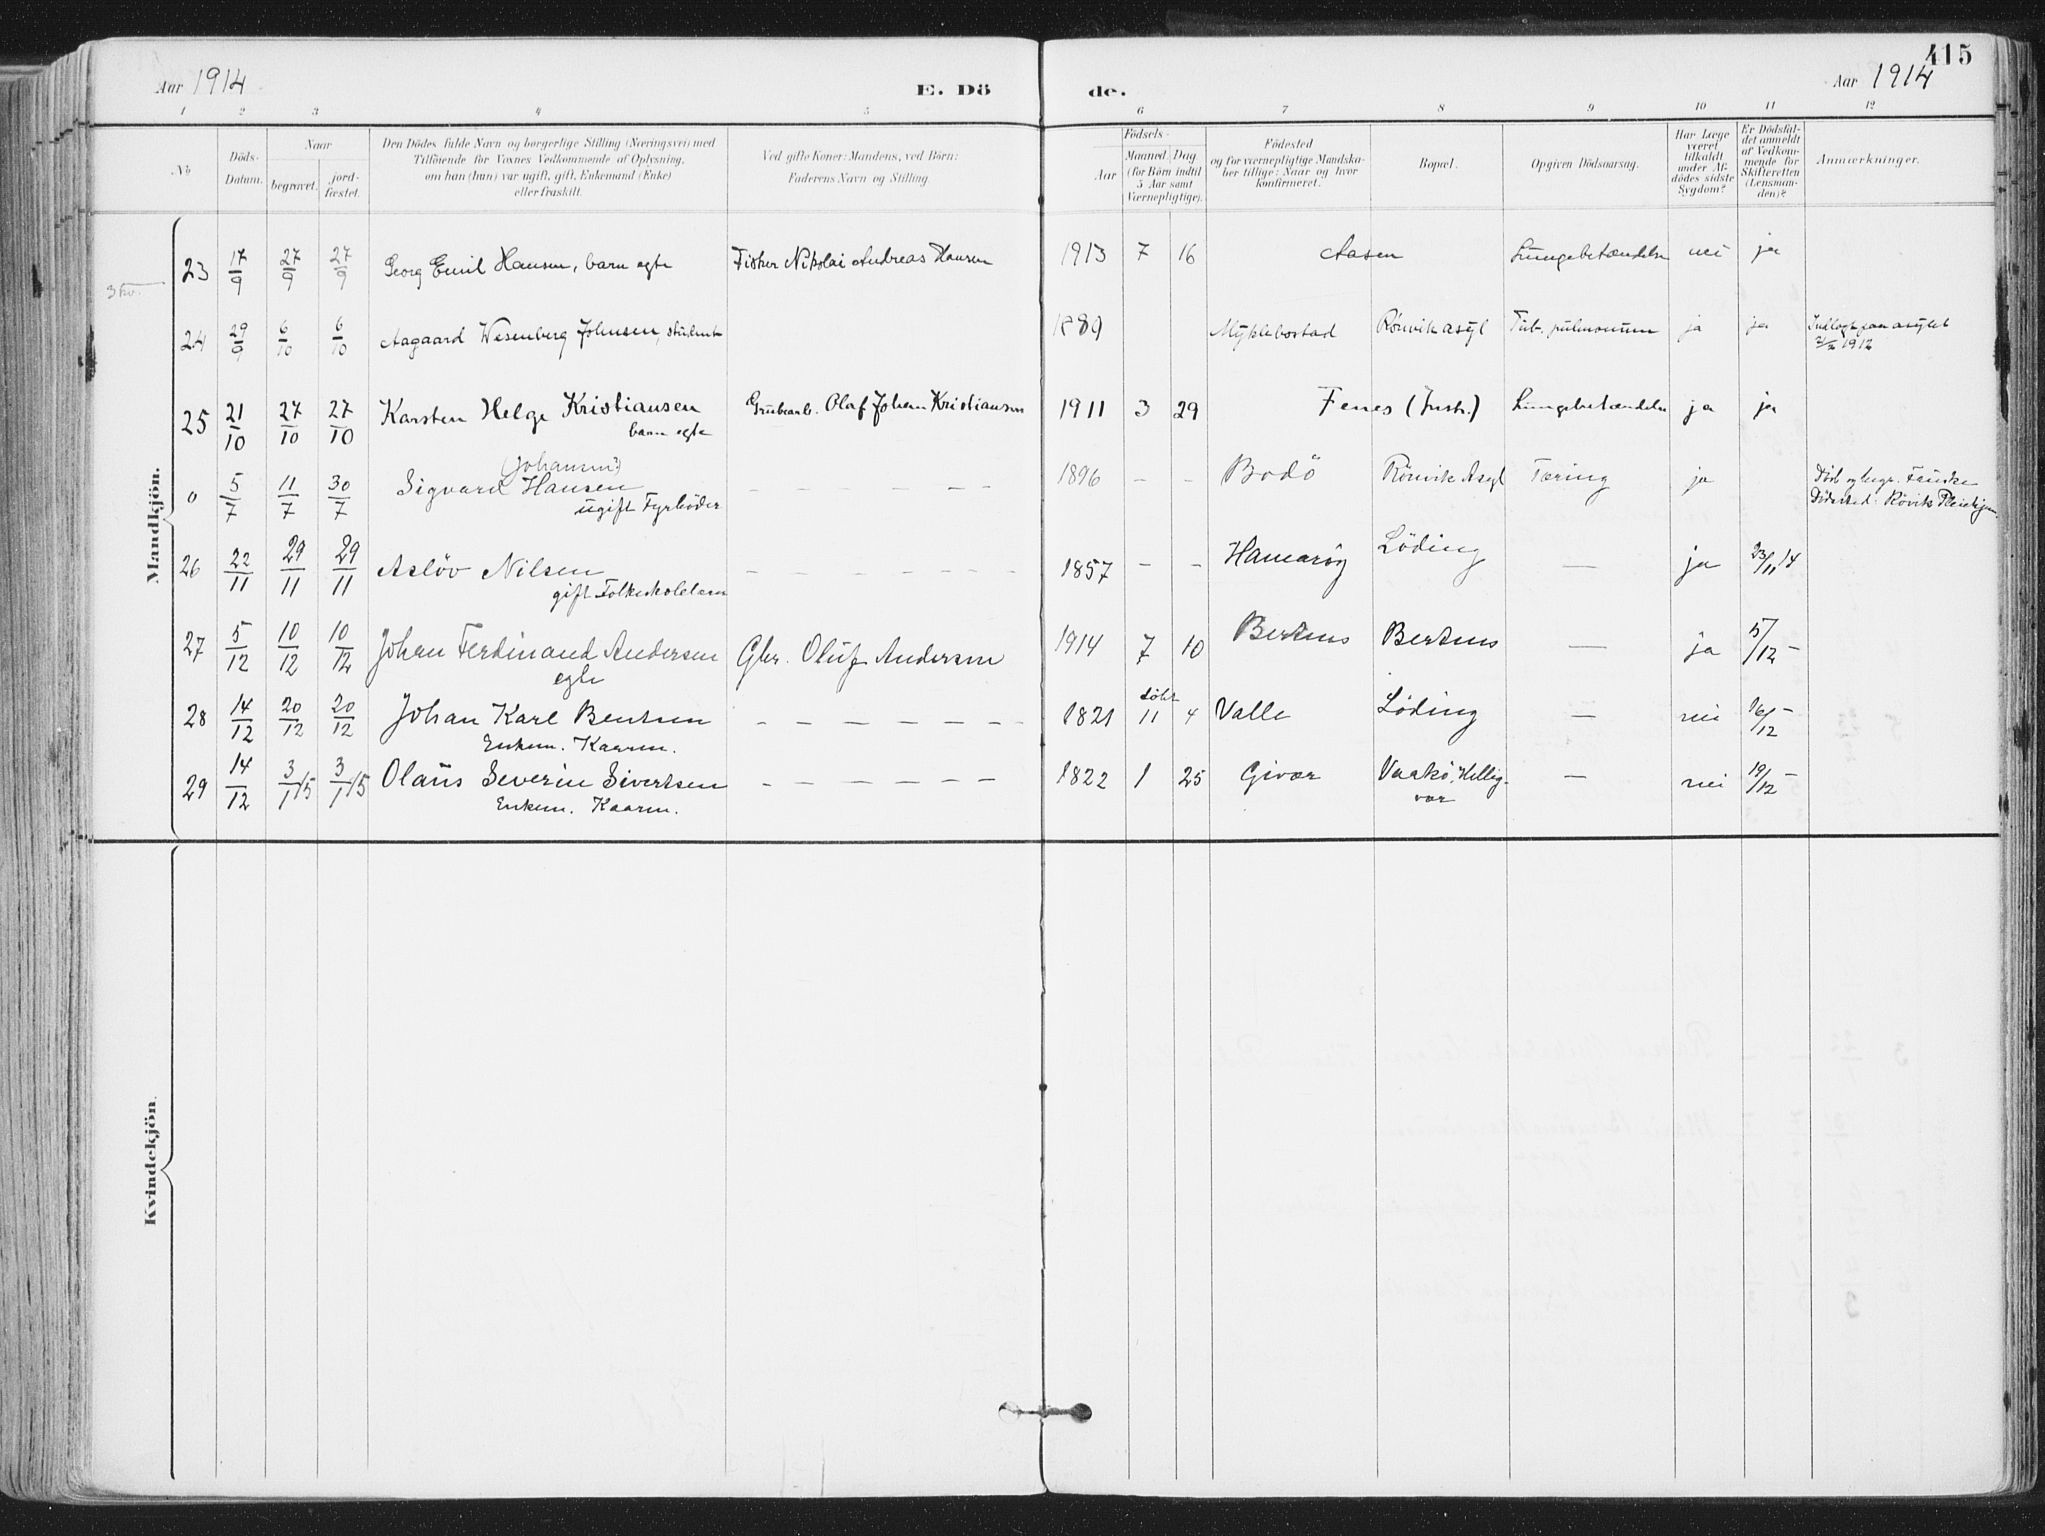 415
Aar 1914 E. Dö de. Aar 1914
1 2 3 4 5 6 7 8 9 10 11 12
No
Döds-
Datum.
Naar
begravet.
jord-
fæstet.
Den Dödes fulde Navn og borgerlige Stilling (Næringsvei) med
Tilföiende for Voxnes Vedkommende af Oplysning,
om han (hun) var ugift, gift, Enkemand (Enke)
eller fraskilt.
Ved gifte Koner: Mandens, ved Börn:
Faderens Navn og Stilling.
Födsels-
Aar
Maaned Dag
(for Börn indtil
5 Aar samt
Værnepligtige).
Födested
og for værnepligtige Mandska-
ber tillige: Naar og hvor
konfirmeret.
Bopæl.
Opgiven Dödsaarsag.
Har Læge
været
tilkaldt
under Af-
dödes sidste
Sygdom?
Er Dödsfal-
det anmeldt
af Vedkom-
mende for
Skifteretten
(Lensman-
den)?
Anmærkninger.
Mandkjön.
23 17/9 27/9 27/9 Georg Emil Hansen, barn egte Fisker Nikolai Andreas Hansen 1913 7 16 Aasen Lungebetændelse nei ja
24 29/9 6/10 6/10 Aagaard Wesenberg Johnsen, student 1889 Myklebostad Rönvik asyl Tub. pulmonum ja ja Indlagt paa asylet
1912
25 21/10 27/10 27/10 Karsten Helge Kristiansen Grubearb. Olaf Johan Kristiansen 1911 3 29 Fenes (Instr.) Lungebetændelse ja ja
barn egte
(Johannes)
0 5/7 11/7 30/7 Sigvard Hansen – – – – – – 1896 – – Bodö Rönvik Asyl Tæring ja Död og begr. Fauske
ugift Fyrböder Dödssted: Rövik Pleiehjem.
26 22/11 29/11 29/11 Aslöv Nilsen – – – – – – – 1857 – – Hamaröy Löding — ja 23/11 14
gift Folkeskolelærer
27 5/12 10/12 10/12 Johan Ferdinand Andersen Gbr. Oluf Andersen 1914 7 10 Bertnes Bertnes — ja 5/12 –
egte
28 14/12 20/12 20/12 Johan Karl Bentsen – – – – – – – 1821 döbt 11 4 Valle Löding — nei 16/12 –
Enkem. Kaarm.
29 14/12 3/1 15 3/1 15 Olaus Severin Sivertsen – – – – – – 1822 1 25 Givær Vaakö, Hellig-
vær — nei 19/12 –
Enkem. Kaarm.
Kvindekjön.